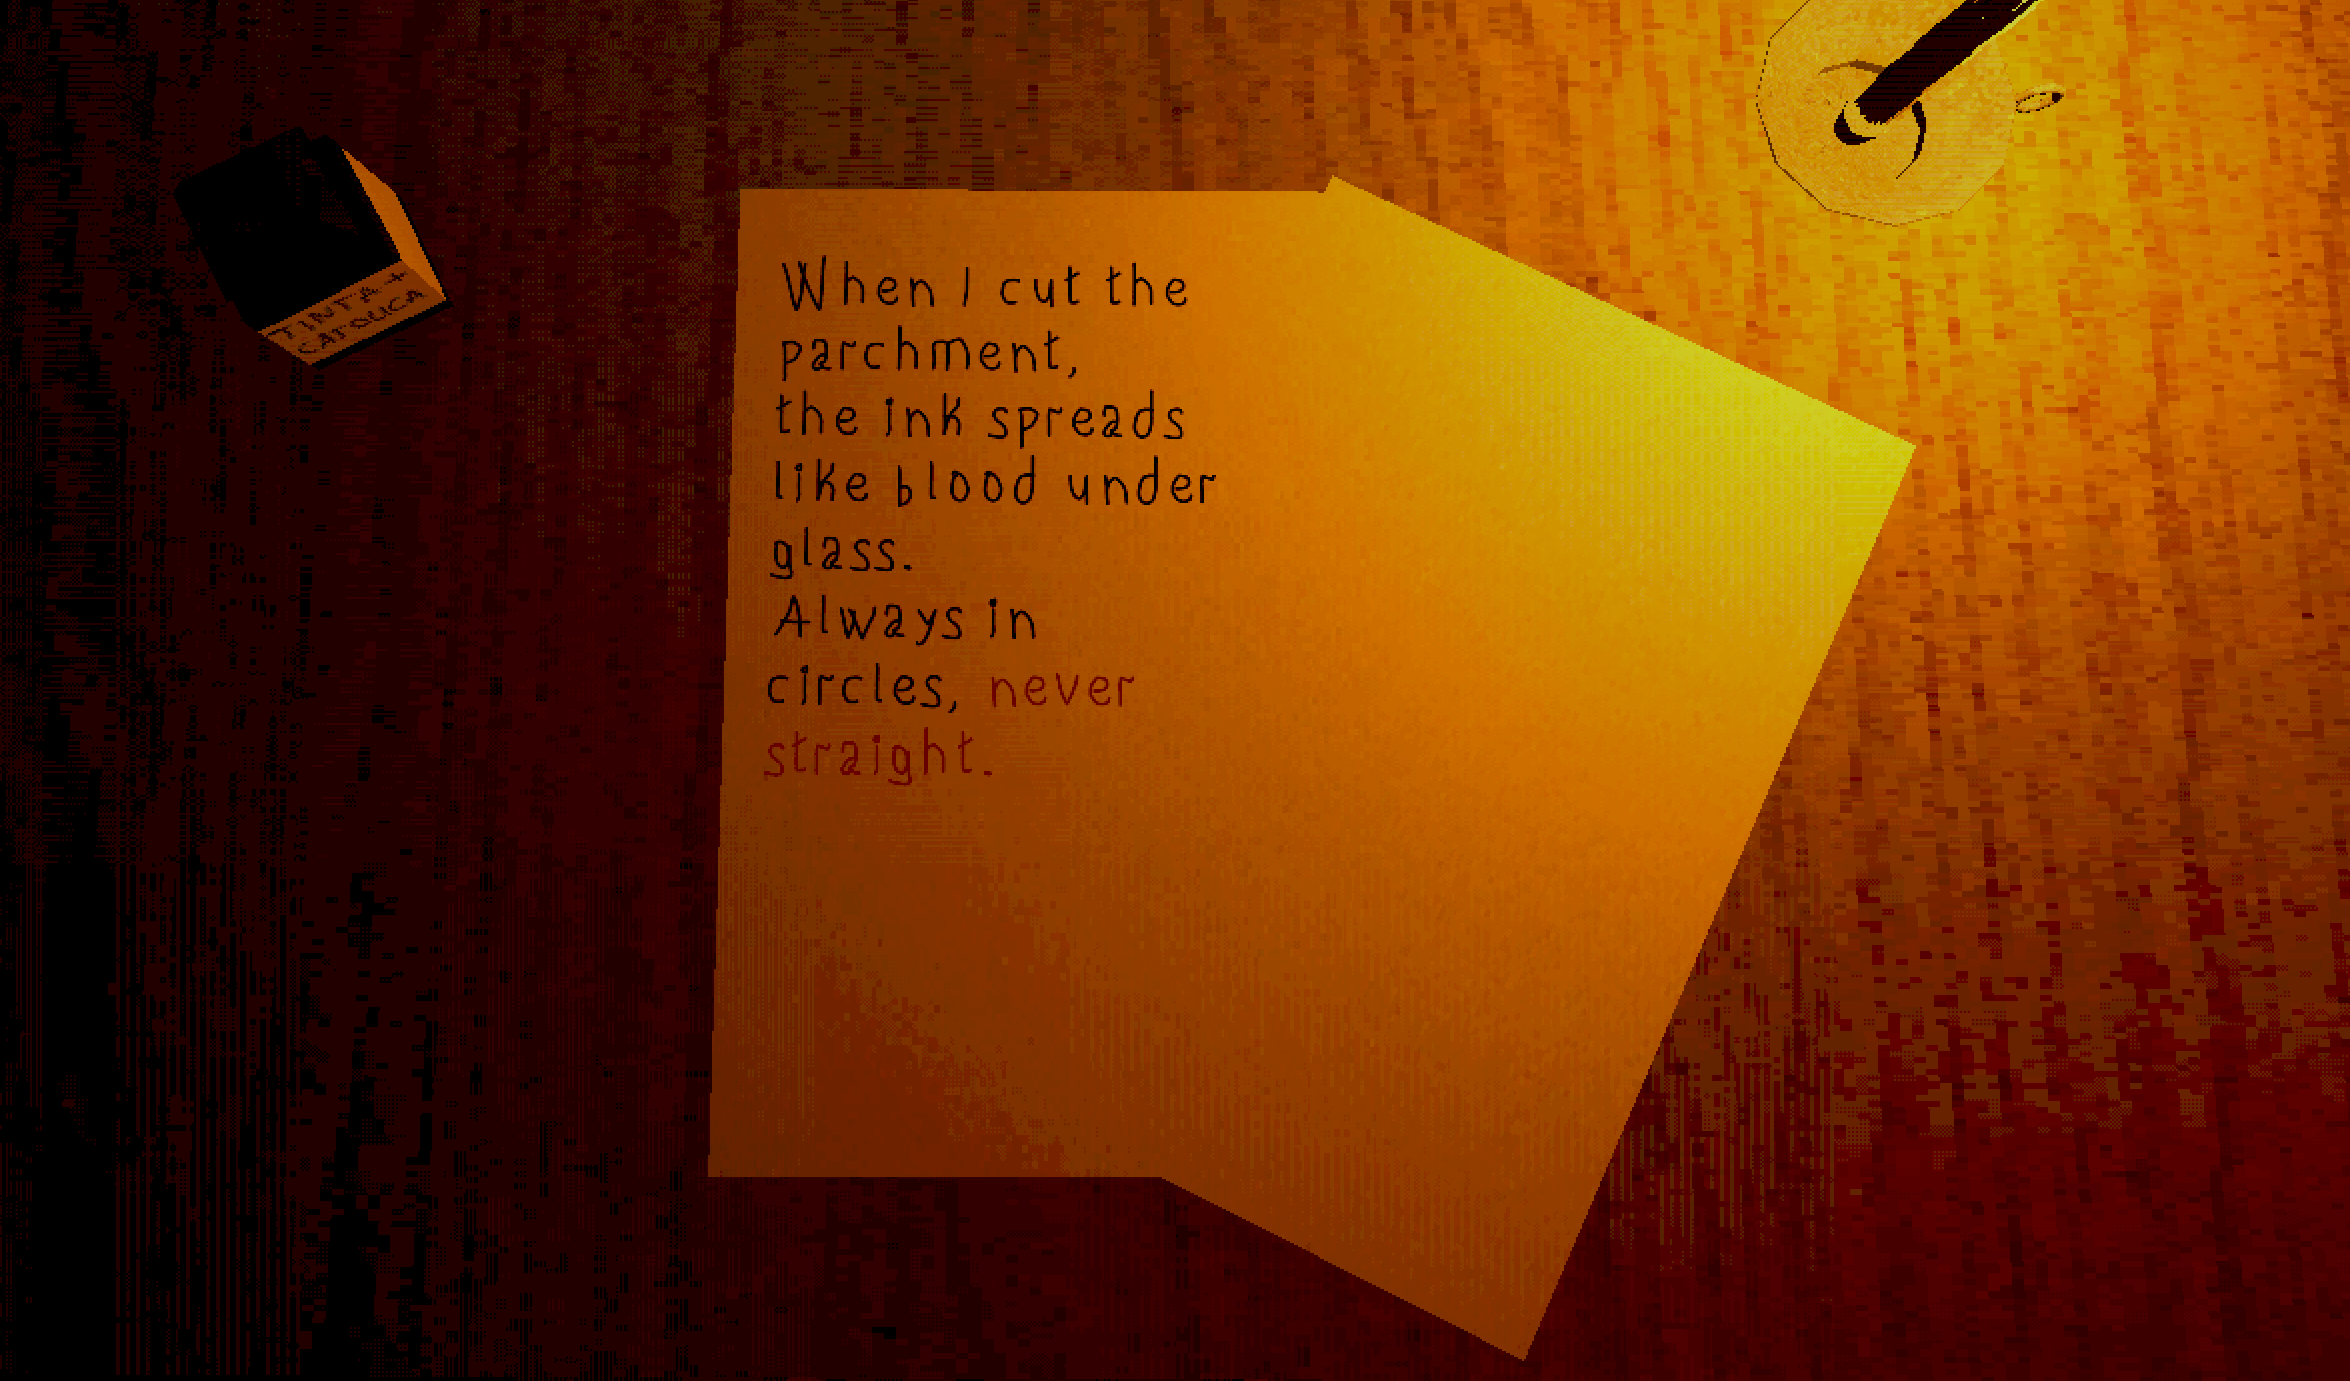 TINTA +
CATOLICA
When I cut the
parchment,
the ink spreads
like blood under
glass.
Always in
circles, never
straight.